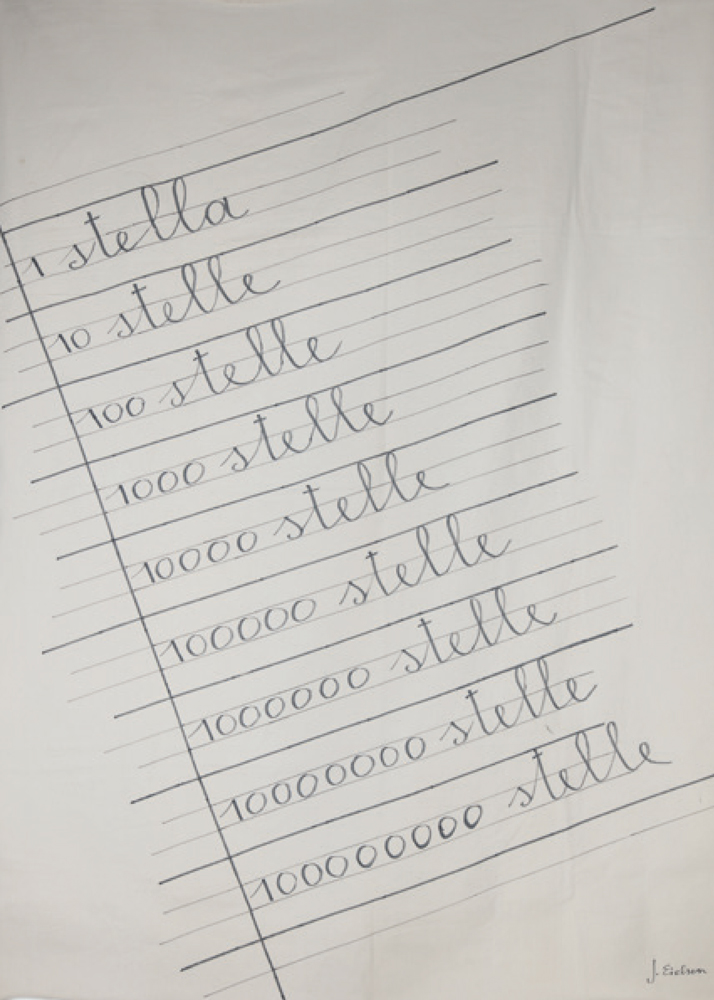 1 stella
10 stelle
100 stelle
1000 stelle
10000 stelle
100000 stelle
1000000 stelle
10000000 stelle
100000000 stelle
J. Eielson